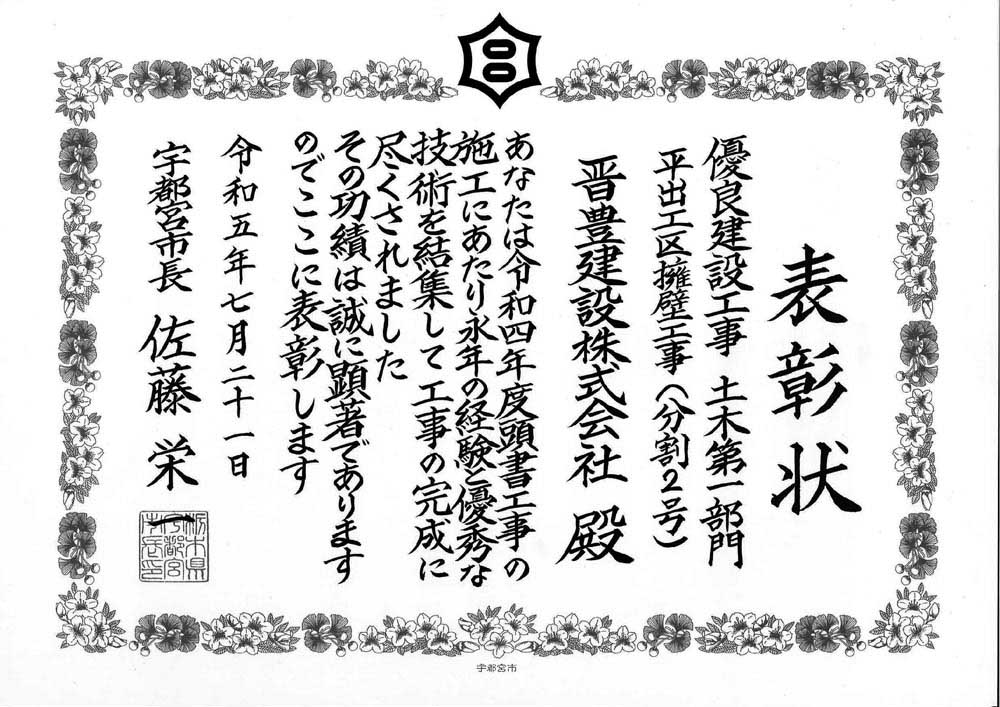 表彰状
優良建設工事 土木第一部門
平出工区擁壁工事(分割2号)
晋豊建設株式会社 殿
あなたは令和四年度頭書工事の
施工にあたり永年の経験と優秀な
技術を結集して工事の完成に
尽くされました
その功績は誠に顕著であります
のでここに表彰します
令和五年七月二十一日
宇都宮市長 佐藤 栄一
栃木県
宇都宮
市長印
宇都宮市